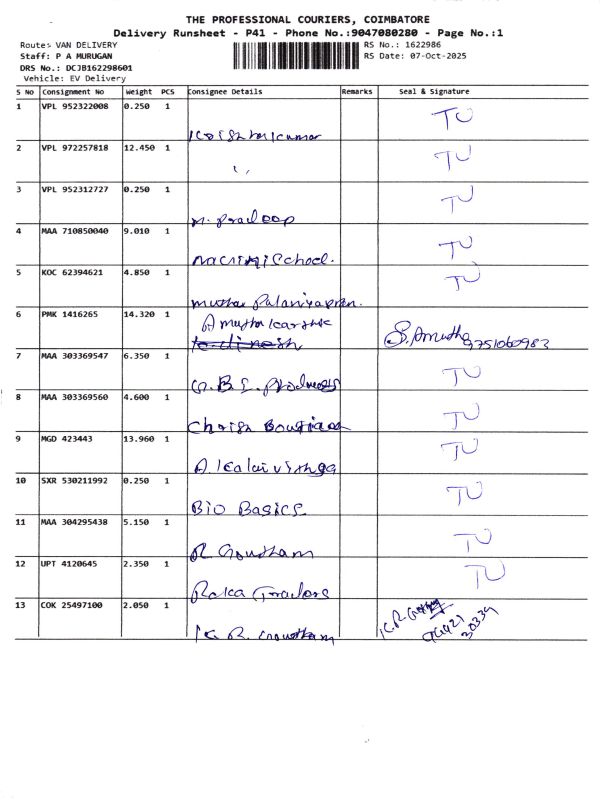 THE PROFESSIONAL COURIERS, COIMBATORE
Delivery Runsheet - P41 - Phone No.:9047080280 - Page No.:1
Route: VAN DELIVERY RS No.: 1622986
Staff: P A MURUGAN RS Date: 07-Oct-2025
DRS No.: DCJB162298601
Vehicle: EV Delivery
S No Consignment No Weight PCS Consignee Details Remarks Seal & Signature
1 VPL 952322008 0.250 1 TU
2 VPL 972257818 12.450 1 ,, TU
3 VPL 952312727 0.250 1 TU
M. Pradeep
4 MAA 710850040 9.010 1 TU
School.
5 KOC 62394621 4.850 1 TU
Muthu Palaniyappan.
6 PMK 1416265 14.320 1
Amutha S. Amutha
dinesh 9751060983
7 MAA 303369547 6.350 1 TU
G.B.S. Products
8 MAA 303369560 4.600 1 TU
9 MGD 423443 13.960 1 TU
A. Kalaivizhga
10 SXR 530211992 0.250 1 TU
Bio Basics
11 MAA 304295438 5.150 1 TU
R Goutham
12 UPT 4120645 2.350 1 TU
Raka Traders
13 COK 25497100 2.050 1 K.R.
K. R. Goutham 30339